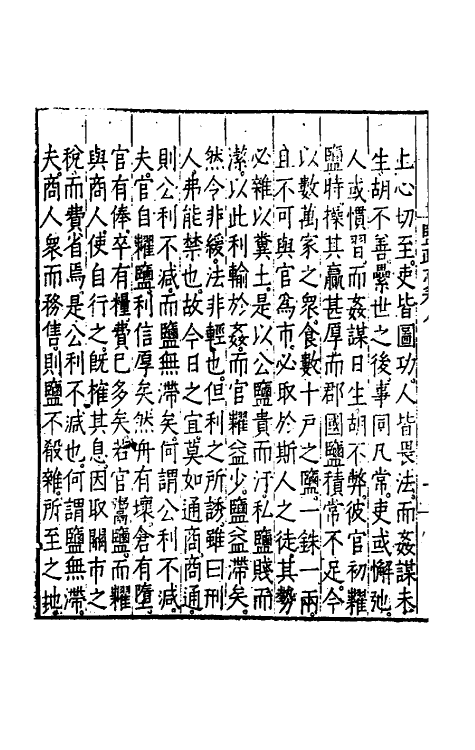 上心切至吏皆圖功人皆畏法而姦謀未
生胡不善纍世之後事同凡常吏或懈弛
人或慣習而姦謀日生胡不弊彼官初糶
鹽時操其贏甚厚而郡國鹽積常不足今
以數萬家之衆食數十戸之鹽一銖一兩
且不可與官為市必取於斯人之徒其勢
必雜以糞土是以公鹽貴而汙私鹽賤而
潔以此利輸於姦而官糶益少鹽益滯矣
然令非緩法非輕也但利之所誘雖曰刑
人弗能禁也故今日之宜莫如通商商通
則公利不減而鹽無滯矣何謂公利不減
夫官自糶鹽利信厚矣然舟有壞倉有墮
官有俸卒有糧費已多矣若官鬻鹽而糶
與商人使自行之旣搉其息因取關市之
稅而費省焉是公利不減也何謂鹽無滯
夫商人衆而務售則鹽不殺雜所至之地